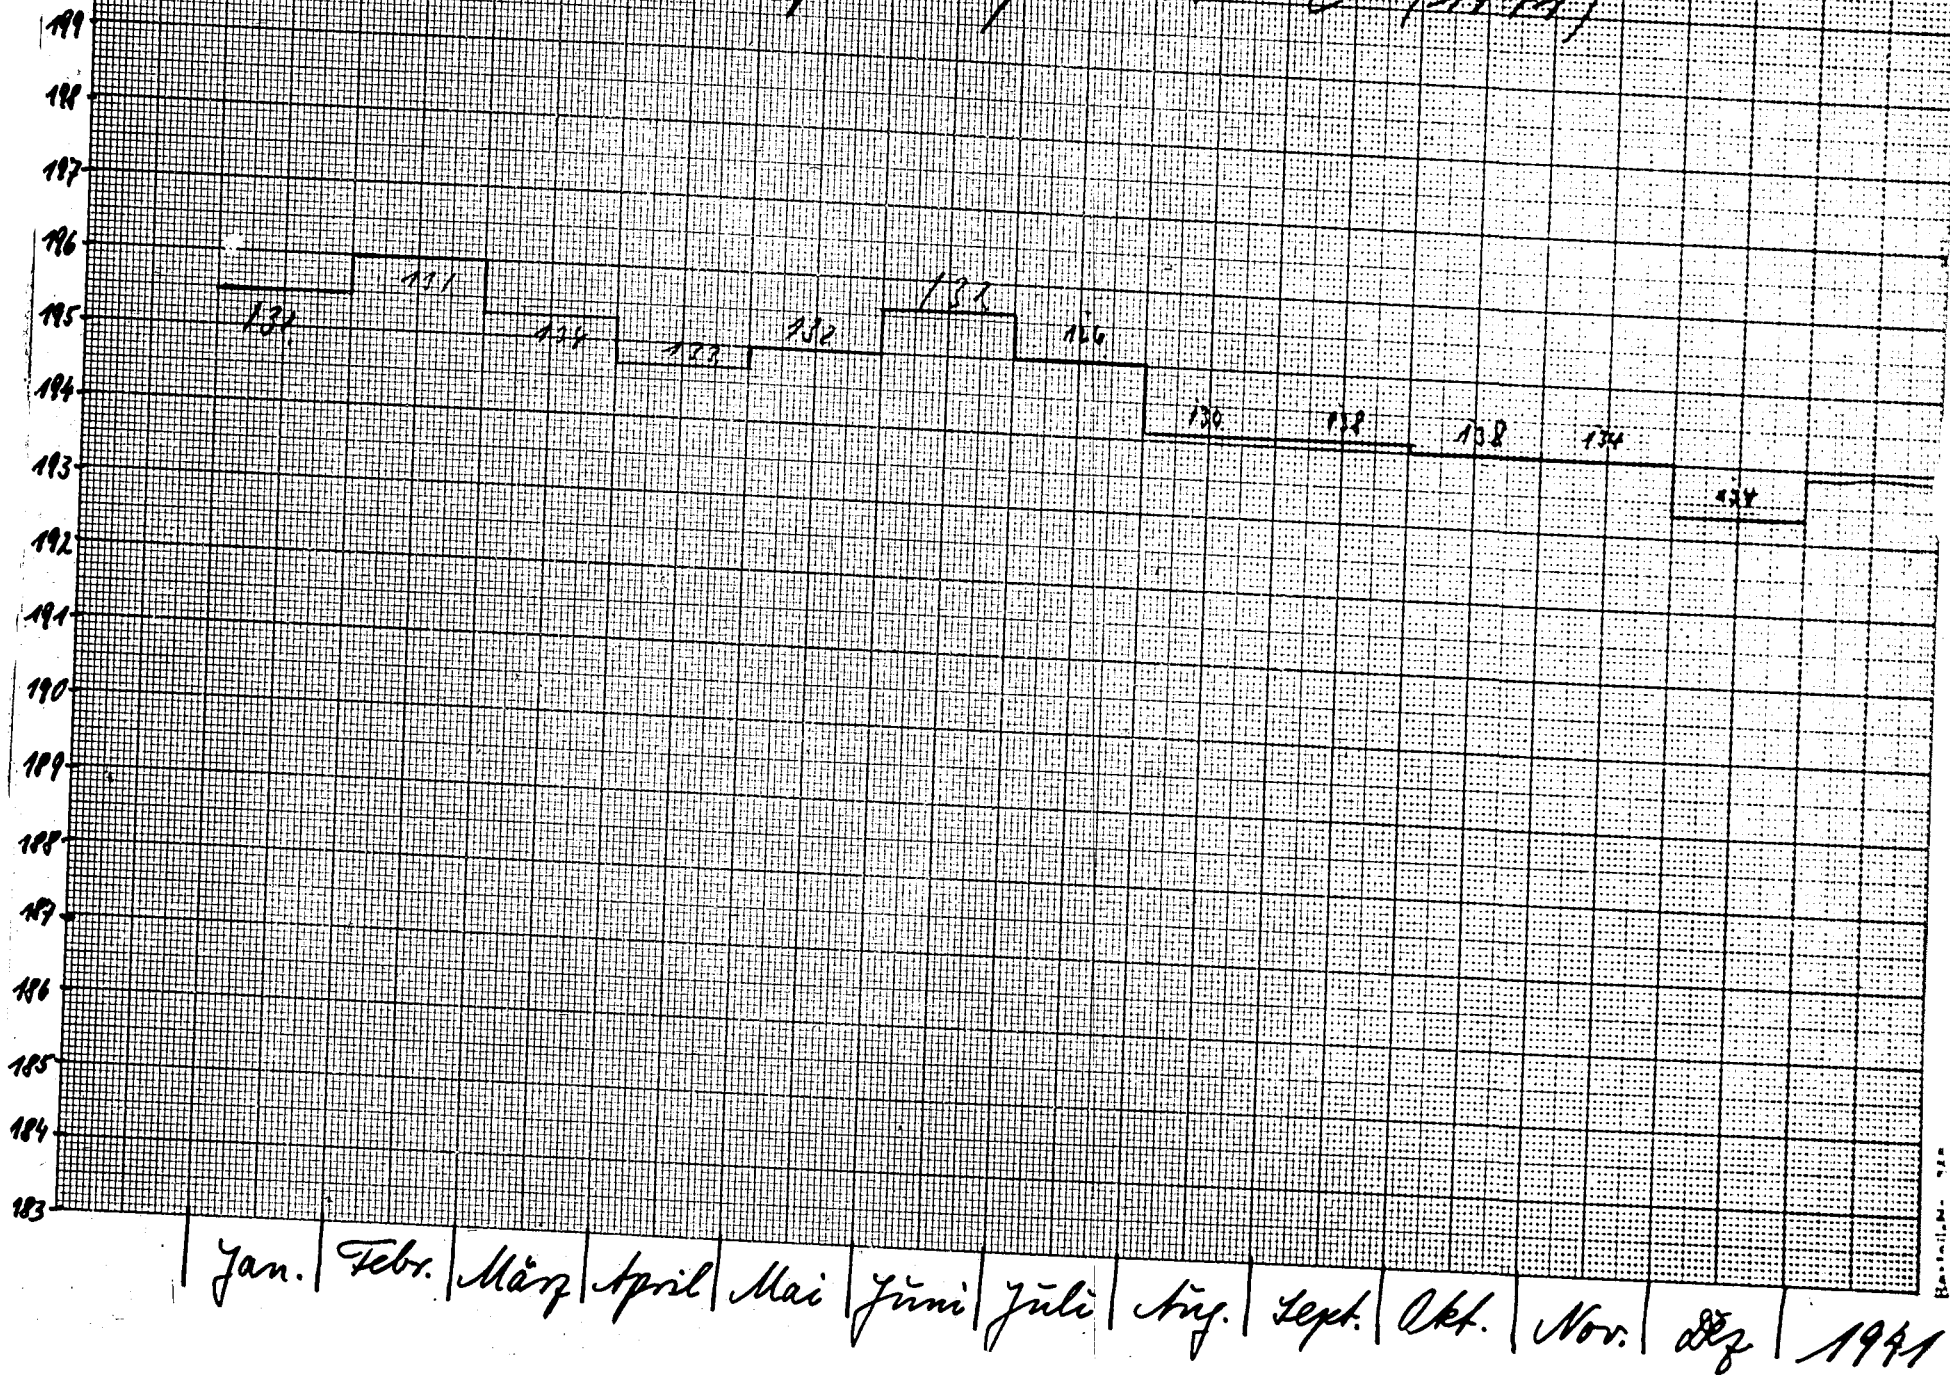 199
198
197
196
195
194
193
192
191
190
189
188
187
186
185
184
183
131
134
133
132
132
126
130
138
138
134
Jan. Febr. März April Mai Juni Juli Aug. Sept. Okt. Nov. Dez 1941